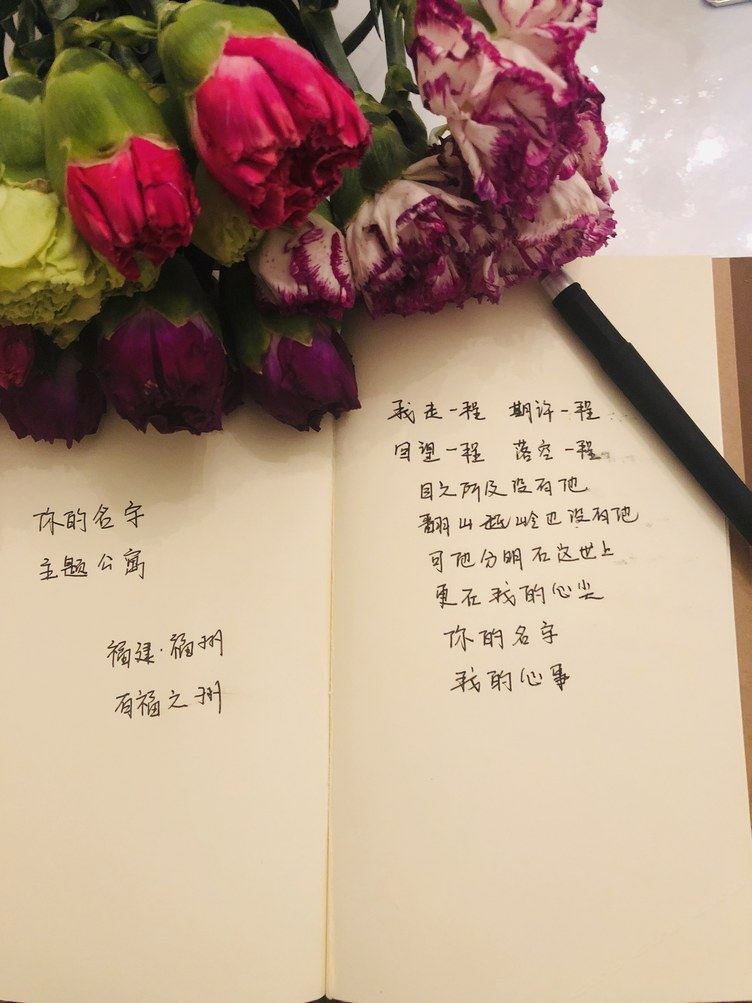 你的名字
主题公寓
福建·福州
有福之州
我走一程 期许一程
回望一程 落空一程
目之所及没有他
翻山越岭也没有他
可他分明在这世上
更在我的心尖
你的名字
我的心事